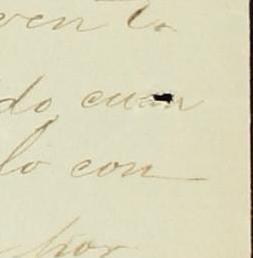 ven la
do cuan
lo con
por